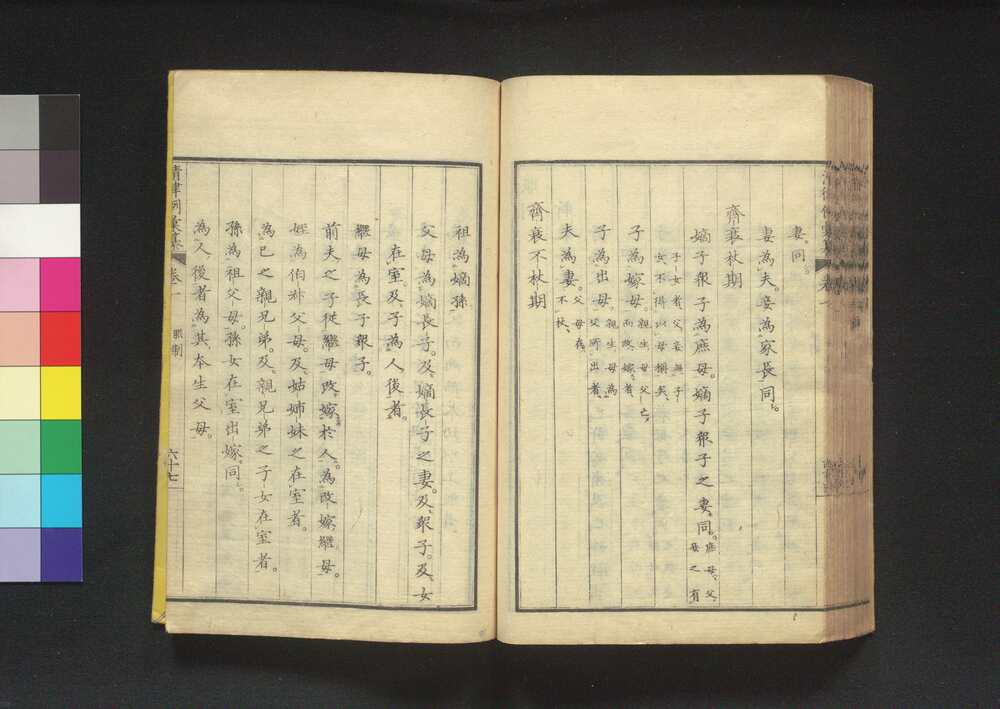 妻。同。
妻為夫。妾為家長同。
齊衰杖期
嫡子眾子為庶母。嫡子眾子之妻同。庶母。父妾之有
子女者。父妾無子
女不得以母稱矣。
子為嫁母。親生母父亡
而改嫁者。
子為出母。親生母為
父所出者。
夫為妻。父母在
不杖。
齊衰不杖期
祖為嫡孫
父母為嫡長子。及嫡長子之妻。及眾子。及女
在室。及子為人後者。
繼母為長子眾子。
前夫之子從繼母改嫁於人。為改嫁繼母。
姪為伯叔父母。及姑姊妹之在室者。
為己之親兄弟。及親兄弟之子女在室者。
孫為祖父母。孫女在室出嫁同。
為人後者為其本生父母。
清律例彙纂 卷一 服制 六十七